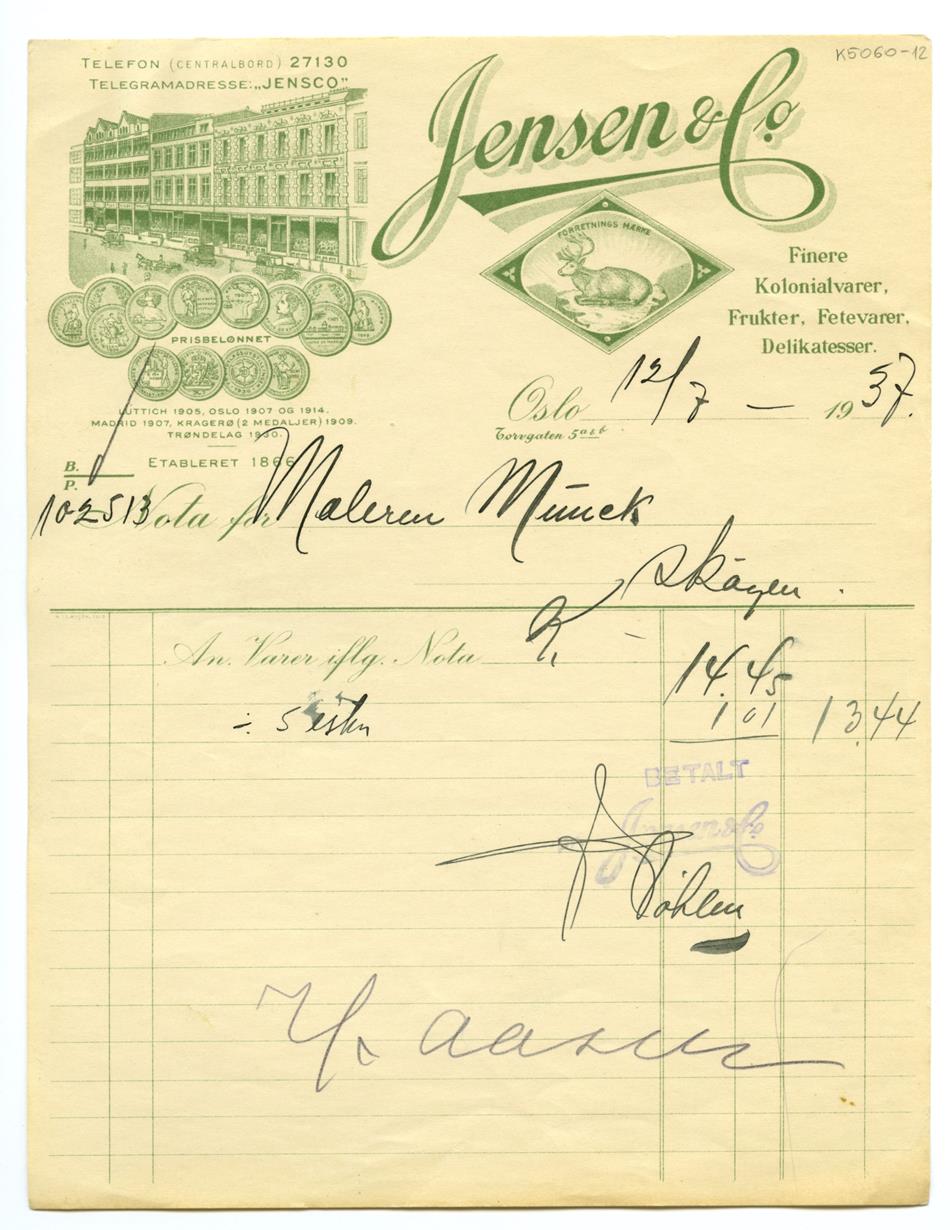 K5060-12
TELEFON (CENTRALBORD) 27130
TELEGRAMADRESSE: „JENSCO"
Jensen & Co.
FORRETNINGS MÆRKE
Finere
Kolonialvarer,
Frukter, Fetevarer,
Delikatesser.
PRISBELØNNET
LÜTTICH 1905, OSLO 1907 OG 1914.
MADRID 1907, KRAGERØ (2 MEDALJER) 1909.
TRØNDELAG 1930.
ETABLERET 1866
Oslo 12/7 — 1937.
Torvgaten 5 a & b
B.
P.
102513 Nota for Maleren Munck
Skøyen.
An. Varer iflg. Nota K. - 14.45
÷ 5 1.01 13.44
BETALT
Jensen & Co.
Aasen